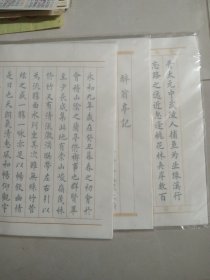 晉太元中武陵人捕魚為業緣溪行
忘路之遠近忽逢桃花林夾岸數百
醉翁亭記
永和九年歲在癸丑暮春之初會於
會稽山陰之蘭亭修禊事也群賢畢
至少長咸集此地有崇山峻嶺茂林
修竹又有清流激湍暎帶左右引以
為流觴曲水列坐其次雖無絲竹管
弦之盛一觴一詠亦足以暢敘幽情
是日也天朗氣清惠風和暢仰觀宇